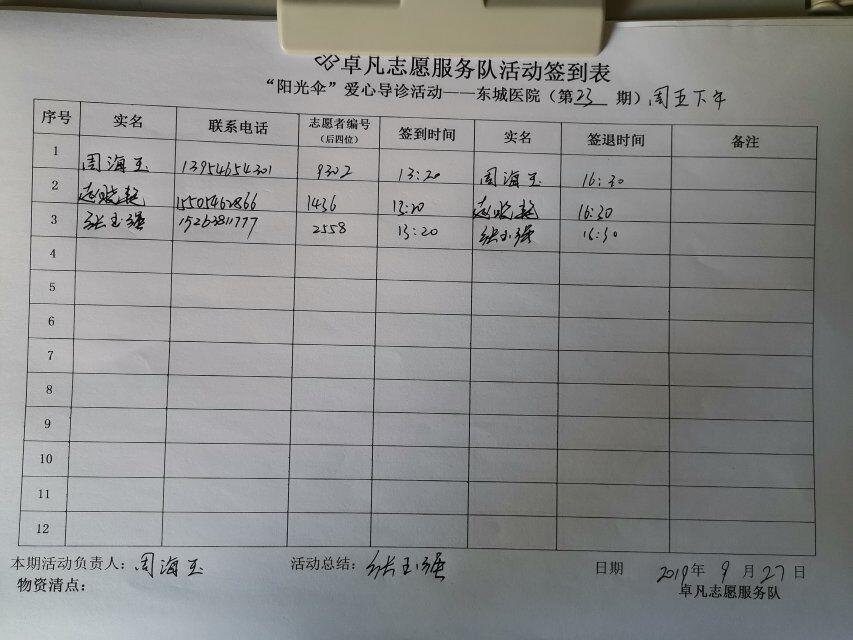 卓凡志愿服务队活动签到表
“阳光伞”爱心导诊活动——东城医院（第23期）周五下午
序号 实名 联系电话 志愿者编号（后四位） 签到时间 实名 签退时间 备注
1 周海玉 13954654301 9302 13:20 周海玉 16:30
2 1436 13:20 16:30
3 张玉强 15263811777 2558 13:20 张玉强 16:30
4
5
6
7
8
9
10
11
12
本期活动负责人：周海玉 活动总结：张玉强 日期 2019年9月27日
物资清点： 卓凡志愿服务队